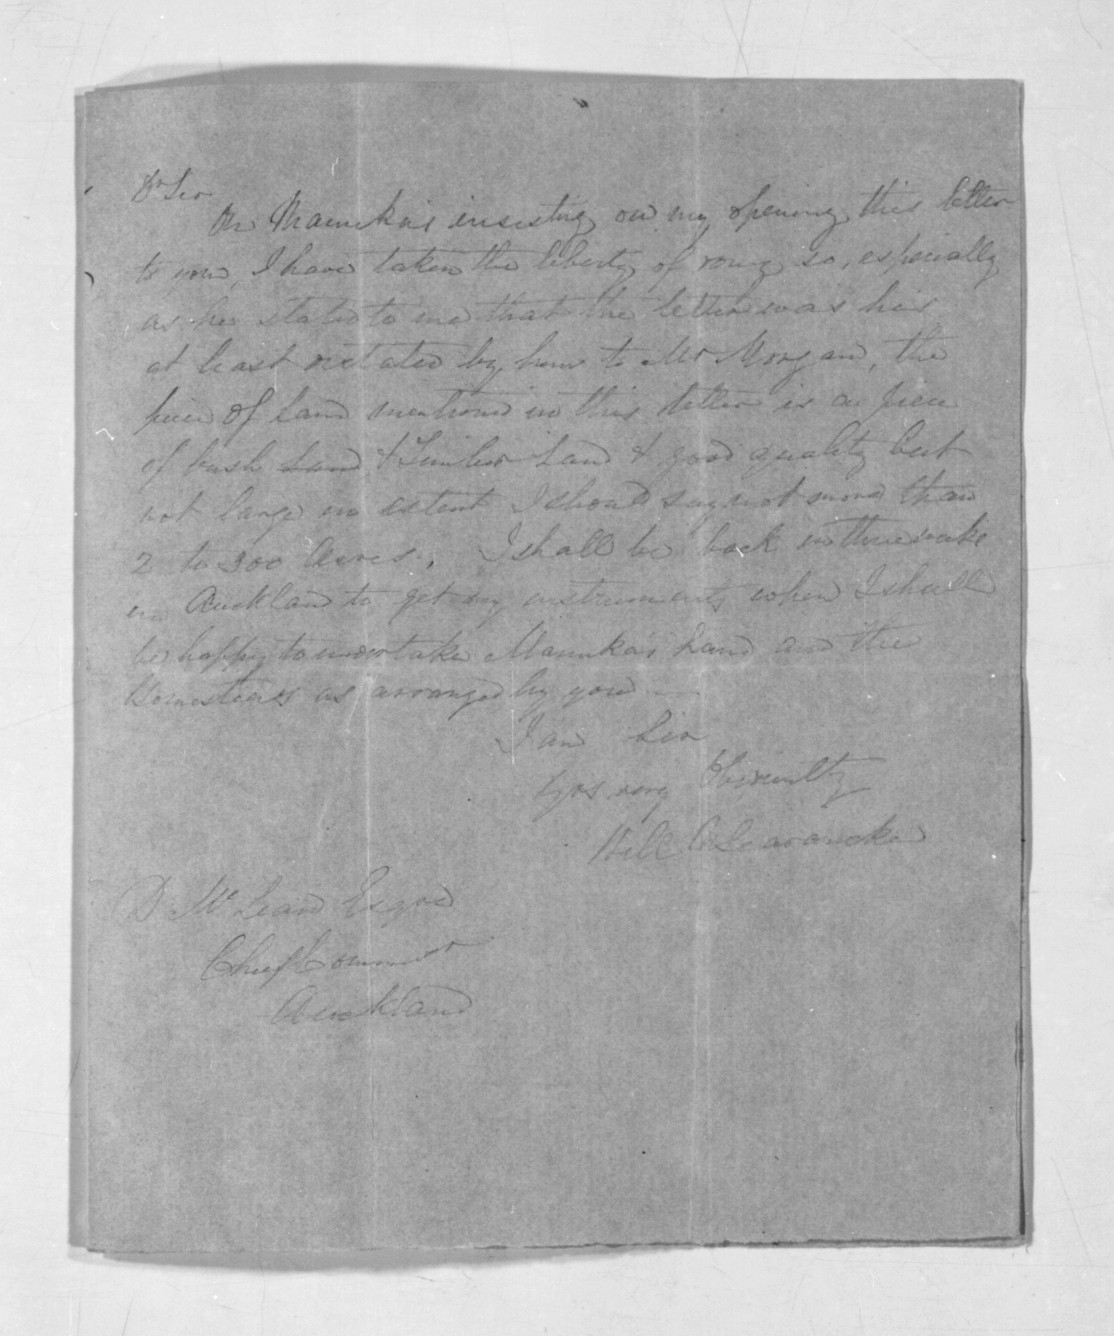 Dr Sir
On Manuka's insisting on my opening this letter
to you, I have taken the liberty of doing so, especially
as he stated to me that the letter was his
at least dictated by him to Mr Morgan, the
piece of Land mentioned in this letter is a piece
of bush Land & Timber Land & good quality but
not large in extent I should say not more than
2 to 300 Acres. I shall be back in three weeks
in Auckland to get my instruments when I shall
be happy to undertake Manuka's Land and the
Homesteads as arranged by you —
I am Sir
Yrs very Obediently
Will N Searancke
D McLean Esqre
Chief Commr
Auckland